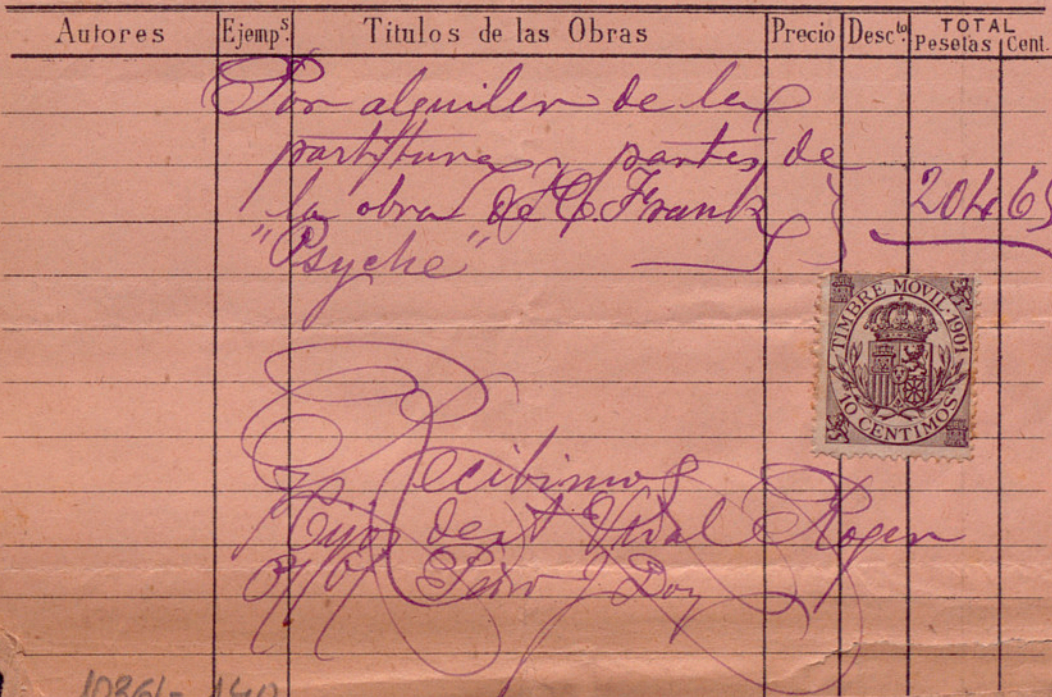 Autores Ejemp.s Titulos de las Obras Precio Desc.to TOTAL
Pesetas Cent.
Por alquiler de la
partitura y partes de
la obra de C. Frank
"Psyche"
204 65
TIMBRE MOVIL·1901
10 CENTIMOS
Recibimos
Hijos de A Vidal Roger
P/O/
10361-140